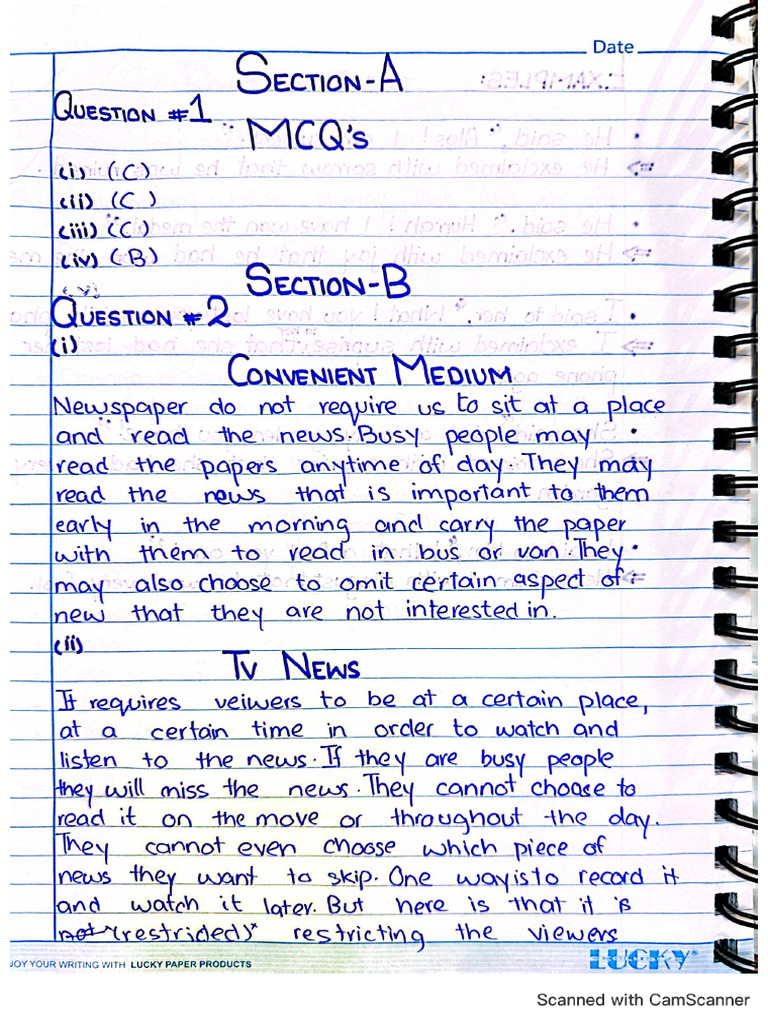 Date
SECTION-A
QUESTION #1
MCQ's
(i) (C)
(ii) (C)
(iii) (C)
(iv) (B)
(v)
SECTION-B
QUESTION #2
(i)
CONVENIENT MEDIUM
Newspaper do not require us to sit at a place
and read the news. Busy people may
read the papers anytime of day. They may
read the news that is important to them
early in the morning and carry the paper
with them to read in bus or van. They
may also choose to omit certain aspect of
new that they are not interested in.
(ii)
TV NEWS
It requires veiwers to be at a certain place,
at a certain time in order to watch and
listen to the news. If they are busy people
they will miss the news. They cannot choose to
read it on the move or throughout the day.
They cannot even choose which piece of
news they want to skip. One way is to record it
and watch it later. But here is that it is
not (restrided)* restricting the viewers
JOY YOUR WRITING WITH LUCKY PAPER PRODUCTS
LUCKY
Scanned with CamScanner